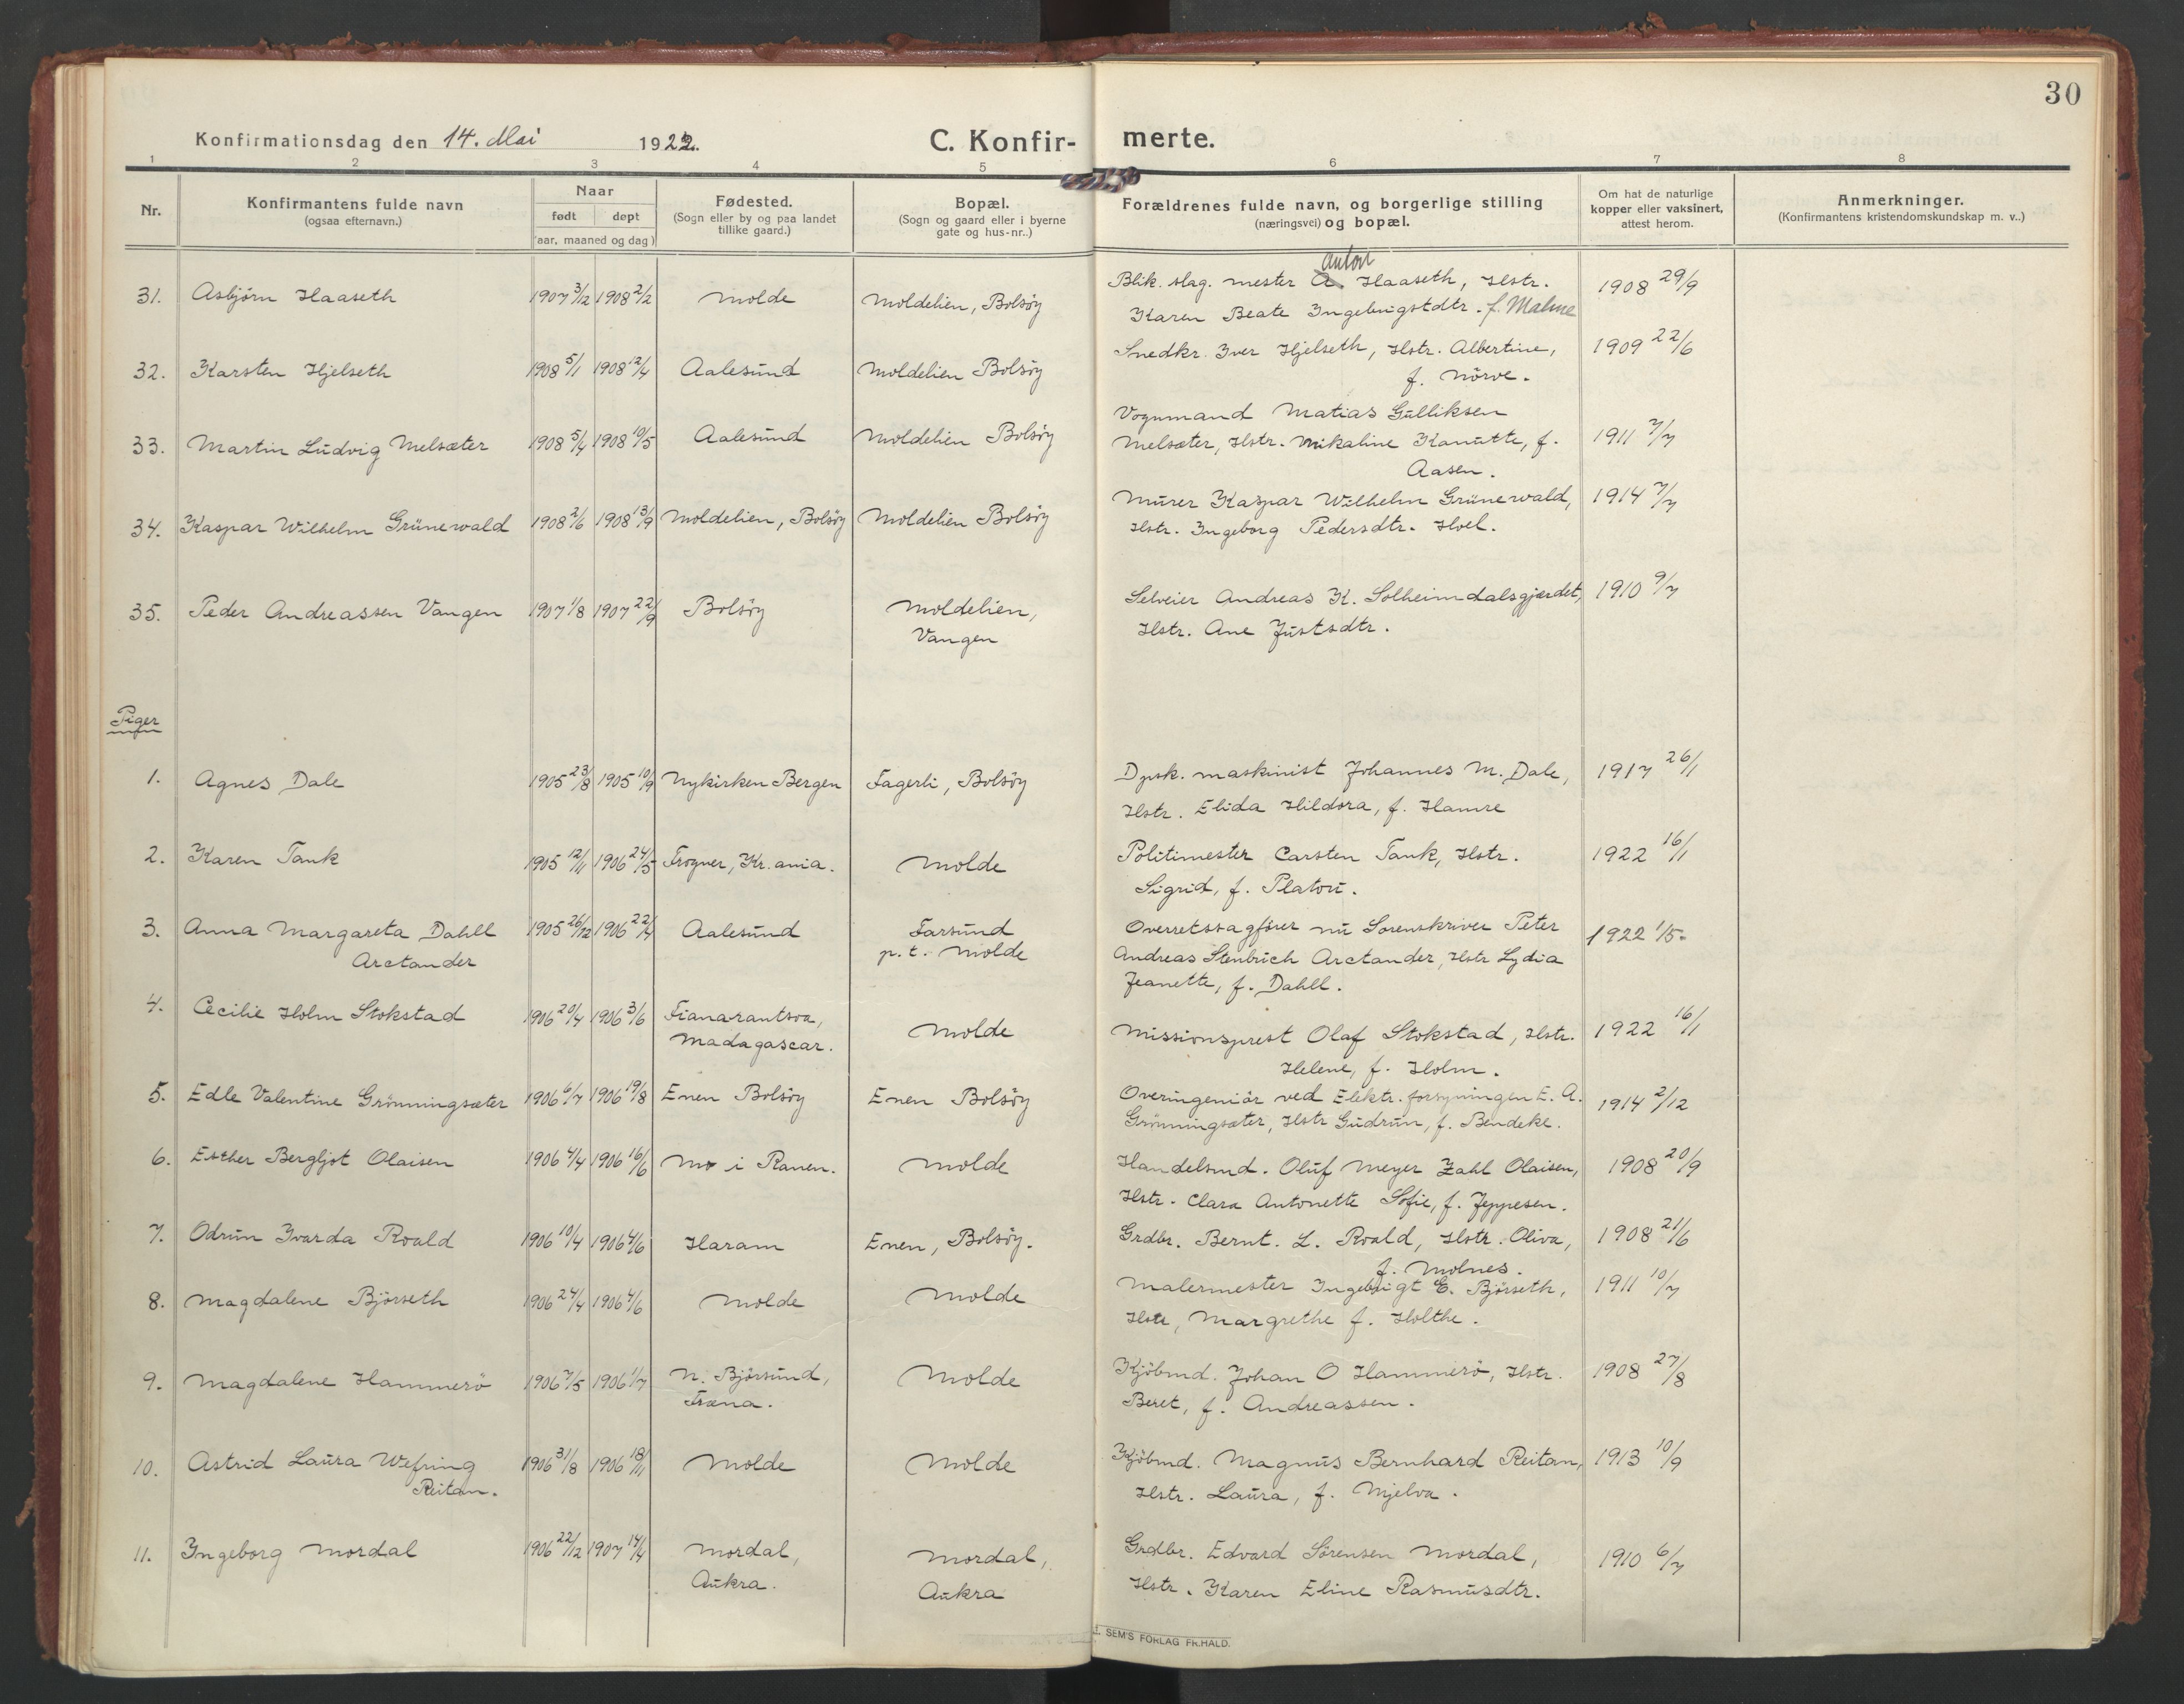 30
Konfirmationsdag den 14. Mai 1922.
C. Konfir- merte.
1 2 3 4 5 6 7 8
Nr.
Konfirmantens fulde navn
(ogsaa efternavn.)
Naar
født døpt
(aar, maaned og dag)
Fødested.
(Sogn eller by og paa landet
tillike gaard.)
Bopæl.
(Sogn og gaard eller i byerne
gate og hus-nr..)
Forældrenes fulde navn, og borgerlige stilling
(næringsvei) og bopæl.
Om hat de naturlige
kopper eller vaksinert,
attest herom.
Anmerkninger.
(Konfirmantens kristendomskundskap m. v..)
31. Asbjörn Haaseth 1907 3/12 1908 2/2 Molde Moldelien, Bolsöy Blik. slag. mester A. Anton Haaseth, Hstr. 1908 29/9
Karen Beate Ingebrigtdtr. f. Malme
32. Karsten Hjelseth 1908 5/1 1908 12/4 Aalesund Moldelien Bolsöy Snedkr. Iver Hjelseth, Hstr. Albertine, 1909 22/6
f. Nörve.
33. Martin Ludvig Melsæter 1908 5/4 1908 10/5 Aalesund Moldelien Bolsöy Vognmand Matias Gulliksen
Melsæter, Hstr. Mikaline Kanutte, f. 1911 7/7
Aasen.
34. Kaspar Wilhelm Grünewald 1908 2/6 1908 13/9 Moldelien, Bolsöy Moldelien Bolsöy Murer Kaspar Wilhelm Grünewald, 1914 7/7
Hstr. Ingeborg Pedersdtr. Hoel.
35. Peder Andreassen Vangen 1907 1/8 1907 22/9 Bolsöy Moldelien, Selveier Andreas K. Solheimdalsgjærdet, 1910 9/7
Vangen Hstr. Ane Justsdtr.
Piger
1. Agnes Dale 1905 23/8 1905 10/9 Nykirken Bergen Fagerli, Bolsöy Dpsk. maskinist Johannes M. Dale, 1917 26/1
Hstr. Elida Hildora, f. Hamre
2. Karen Tank 1905 12/11 1906 24/5 Frogner, Kr.ania. Molde Politimester Carsten Tank, Hstr. 1922 16/1
Sigrid, f. Platou.
3. Anna Margareta Dahll 1905 26/12 1906 22/4 Aalesund Farsund Overretssagfører nu Sorenskriver Peter 1922 1/5.
Arctander p.t. Molde Andreas Stenbuch Arctander, Hstr Lydia
Jeanette, f. Dahll.
4. Cecilie Holm Stokstad 1906 20/4 1906 3/6 Fianarantsoa, Molde Missionsprest Olaf Stokstad, Hstr. 1922 16/1
Madagascar. Helene, f. Holm.
5. Edle Valentine Grönningsæter 1906 6/7 1906 19/8 Enen Bolsöy Enen Bolsöy Overingeniör ved Elektr. forsyningen E. A. 1914 2/12
Grönningsæter, Hstr Gudrun, f. Bendeke.
6. Esther Bergljot Olaisen 1906 4/4 1906 16/6 Mo i Ranen. Molde Handelsmd. Oluf Meyer Zahl Olaisen, 1908 20/9
Hstr. Clara Antonette Sofie, f. Jeppesen.
7. Odrun Ivarda Roald 1906 10/4 1906 4/6 Haram Enen, Bolsöy. Grdbr. Bernt. L. Roald, Hstr. Oliva, 1908 21/6
f. Molnes.
8. Magdalene Björseth 1906 24/4 1906 4/6 Molde Molde Malermester Ingebrigt E. Björseth, 1911 10/7
Hstr, Margrethe f. Holthe.
9. Magdalene Hammerö 1906 7/5 1906 1/7 N. Björnsund, Molde Kjöbmd. Johan O Hammerö, Hstr. 1908 27/8
Fræna. Beret, f. Andreassen.
10. Astrid Laura Wefring 1906 31/8 1906 18/11 Molde Molde Kjöbmd. Magnus Bernhard Reitan, 1913 10/9
Reitan. Hstr. Laura, f. Mjelva.
11. Ingeborg Mordal 1906 22/12 1907 14/4 Mordal, Mordal, Grdbr. Edvard Sörensen Mordal, 1910 6/7
Aukra. Aukra Hstr. Karen Eline Rasmusdtr.
SEM'S FORLAG FR.HALD.